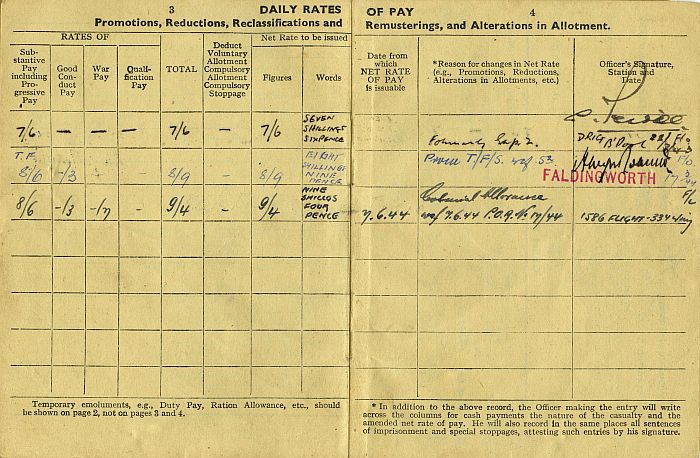 3 DAILY RATES
Promotions, Reductions, Reclassifications and
RATES OF
Net Rate to be issued
Sub-
stantive
Pay
including
Pro-
gressive
Pay
Good
Con-
duct
Pay
War
Pay
Quali-
fication
Pay
TOTAL
Deduct
Voluntary
Allotment
Compulsory
Allotment
Compulsory
Stoppage
Figures
Words
7/6 — — — 7/6 7/6
SEVEN
SHILLINGS
SIXPENCE
T.F.
8/6 -/3 8/9 8/9
EIGHT
SHILLINGS
NINE
PENCE
8/6 -/3 -/7 9/4 9/4
NINE
FOUR
PENCE
Temporary emoluments, e.g., Duty Pay, Ration Allowance, etc., should
be shown on page 2, not on pages 3 and 4.
OF PAY 4
Remusterings, and Alterations in Allotment.
Date from
which
NET RATE
OF PAY
is issuable
*Reason for changes in Net Rate
(e.g., Promotions, Reductions,
Alterations in Allotments, etc.)
Officer's Signature,
Station and
Date
Formerly
T/F/S.
FALDINGWORTH
Colonial Allowance
7.6.44 7.6.44 P.O.R. 17/44 1586 FLIGHT-334 Wing
* In addition to the above record, the Officer making the entry will write
across the columns for cash payments the nature of the casualty and the
amended net rate of pay. He will also record in the same places all sentences
of imprisonment and special stoppages, attesting such entries by his signature.